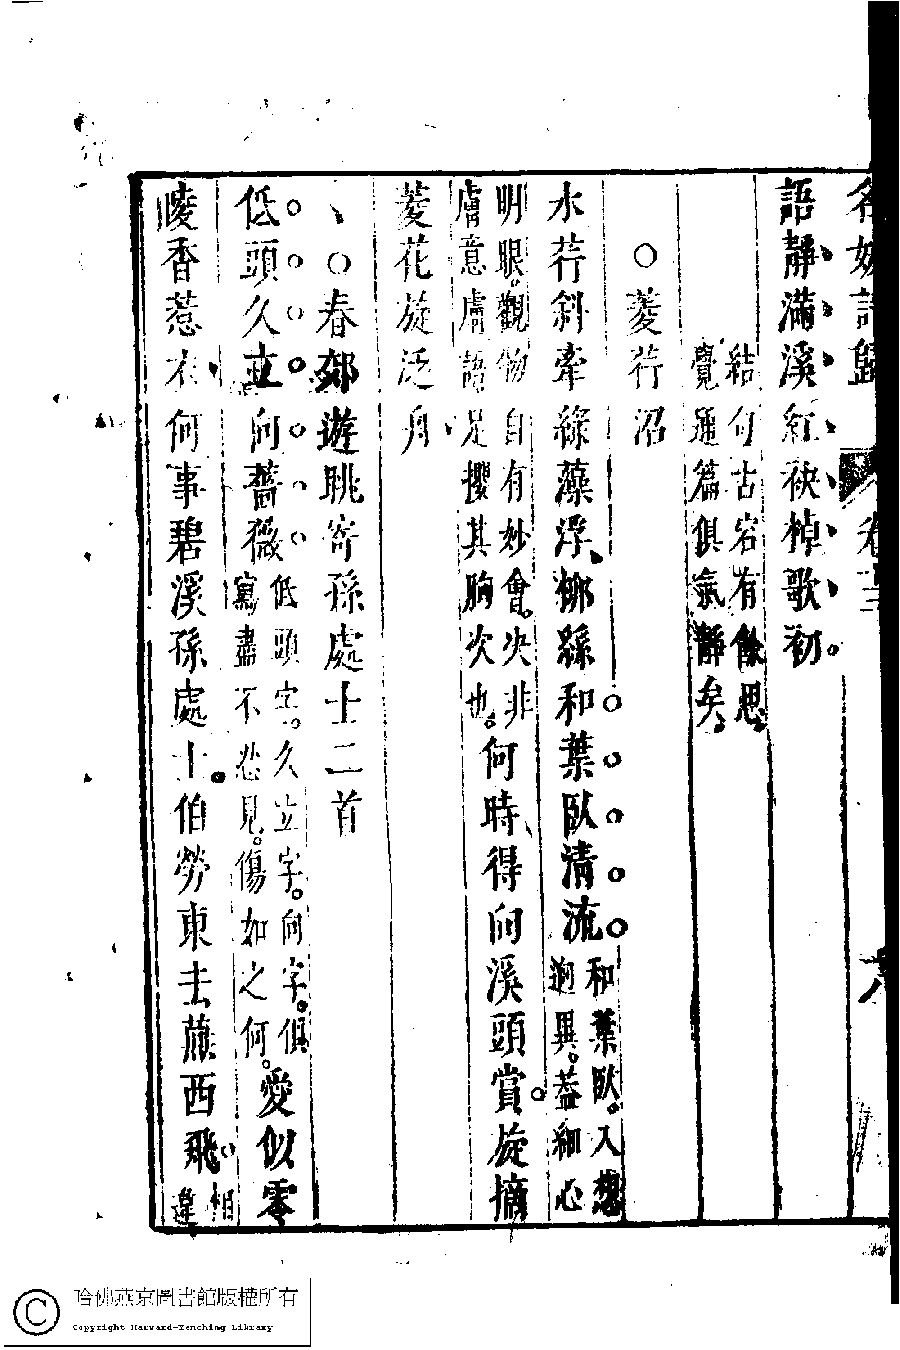 名媛詩歸 卷十三 六
語靜滿溪紅袂棹歌初
結句古宕有餘思
覺通篇俱氣靜矣
○菱荇沼
水荇斜牽綠藻浮柳絲和葉臥清流和葉臥入想
逈異葢細心
明眼觀物自有妙會決非
膚意膚語足攖其胸次也何時得向溪頭賞旋摘
菱花旋泛舟
○春郊遊眺寄孫處士二首
低頭久立向薔薇低頭字久立字向字俱
寫盡不忿見傷如之何愛似零
陵香惹衣何事碧溪孫處士伯勞東去燕西飛相
違
哈佛燕京圖書館版權所有
Copyright Harvard-Yenching Library